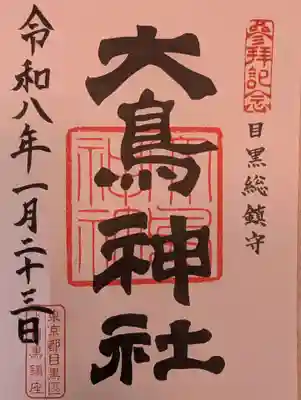 参拝記念
目黒総鎮守
大鳥神社
令和八年一月二十三日
東京都目黒区